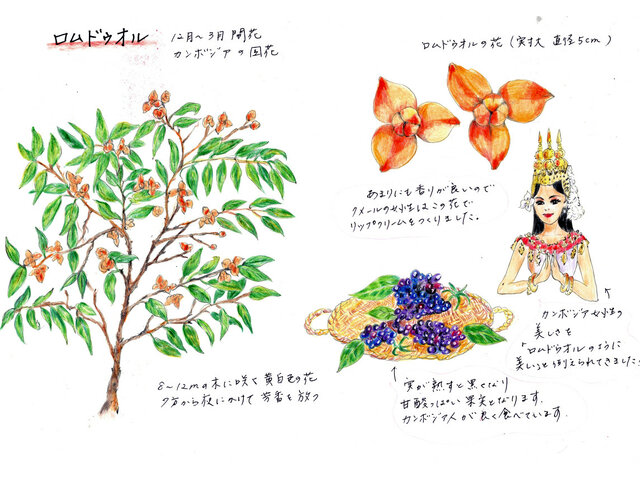 ロムドゥオル
12月～3月 開花
カンボジアの国花
ロムドゥオルの花 (実寸大 直径5cm)
あまりにも香りが良いので
クメールの女性はこの花で
リップクリームをつくりました。
カンボジア女性の
美しさを
「ロムドゥオルのように
美しい」と例えられてきました!
8～12mの木に咲く黄白色の花
夕方から夜にかけて芳香を放つ
実が熟すと黒くなり
甘酸っぱい果実となります。
カンボジア人が良く食べています。